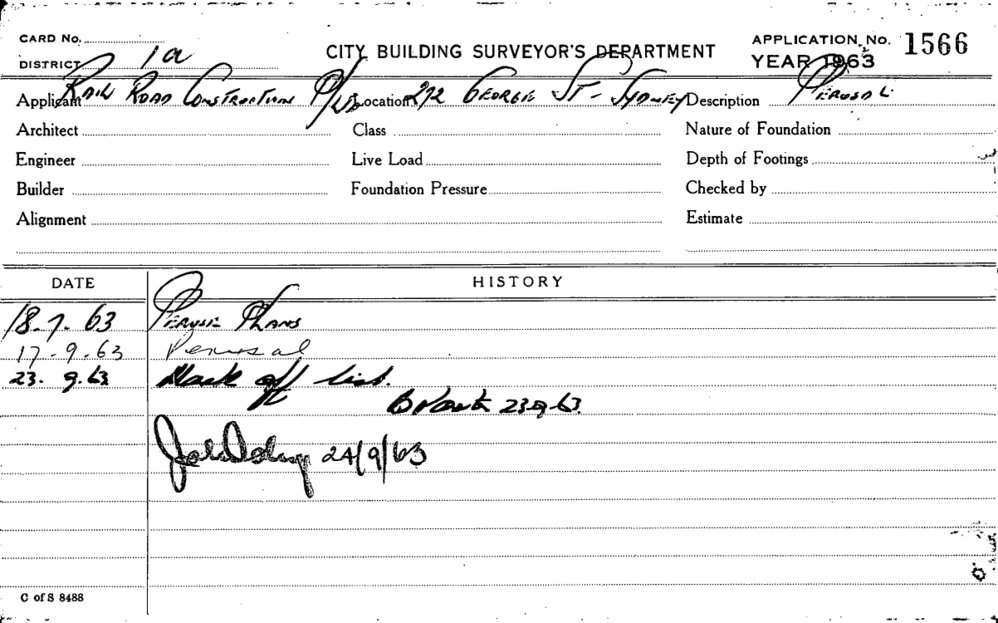 CARD No.
DISTRICT 1a
CITY BUILDING SURVEYOR'S DEPARTMENT
APPLICATION No. 1566
YEAR 1963
Applicant Rail Road Construction P/Ltd Location 272 George St - Sydney Description Perusal
Architect Class Nature of Foundation
Engineer Live Load Depth of Footings
Builder Foundation Pressure Checked by
Alignment Estimate
DATE HISTORY
18-7-63 Peruse Plans
17-9-63 Perusal
23.9.63 Mark off list.
23.9.63.
24/9/63
C of S 8488